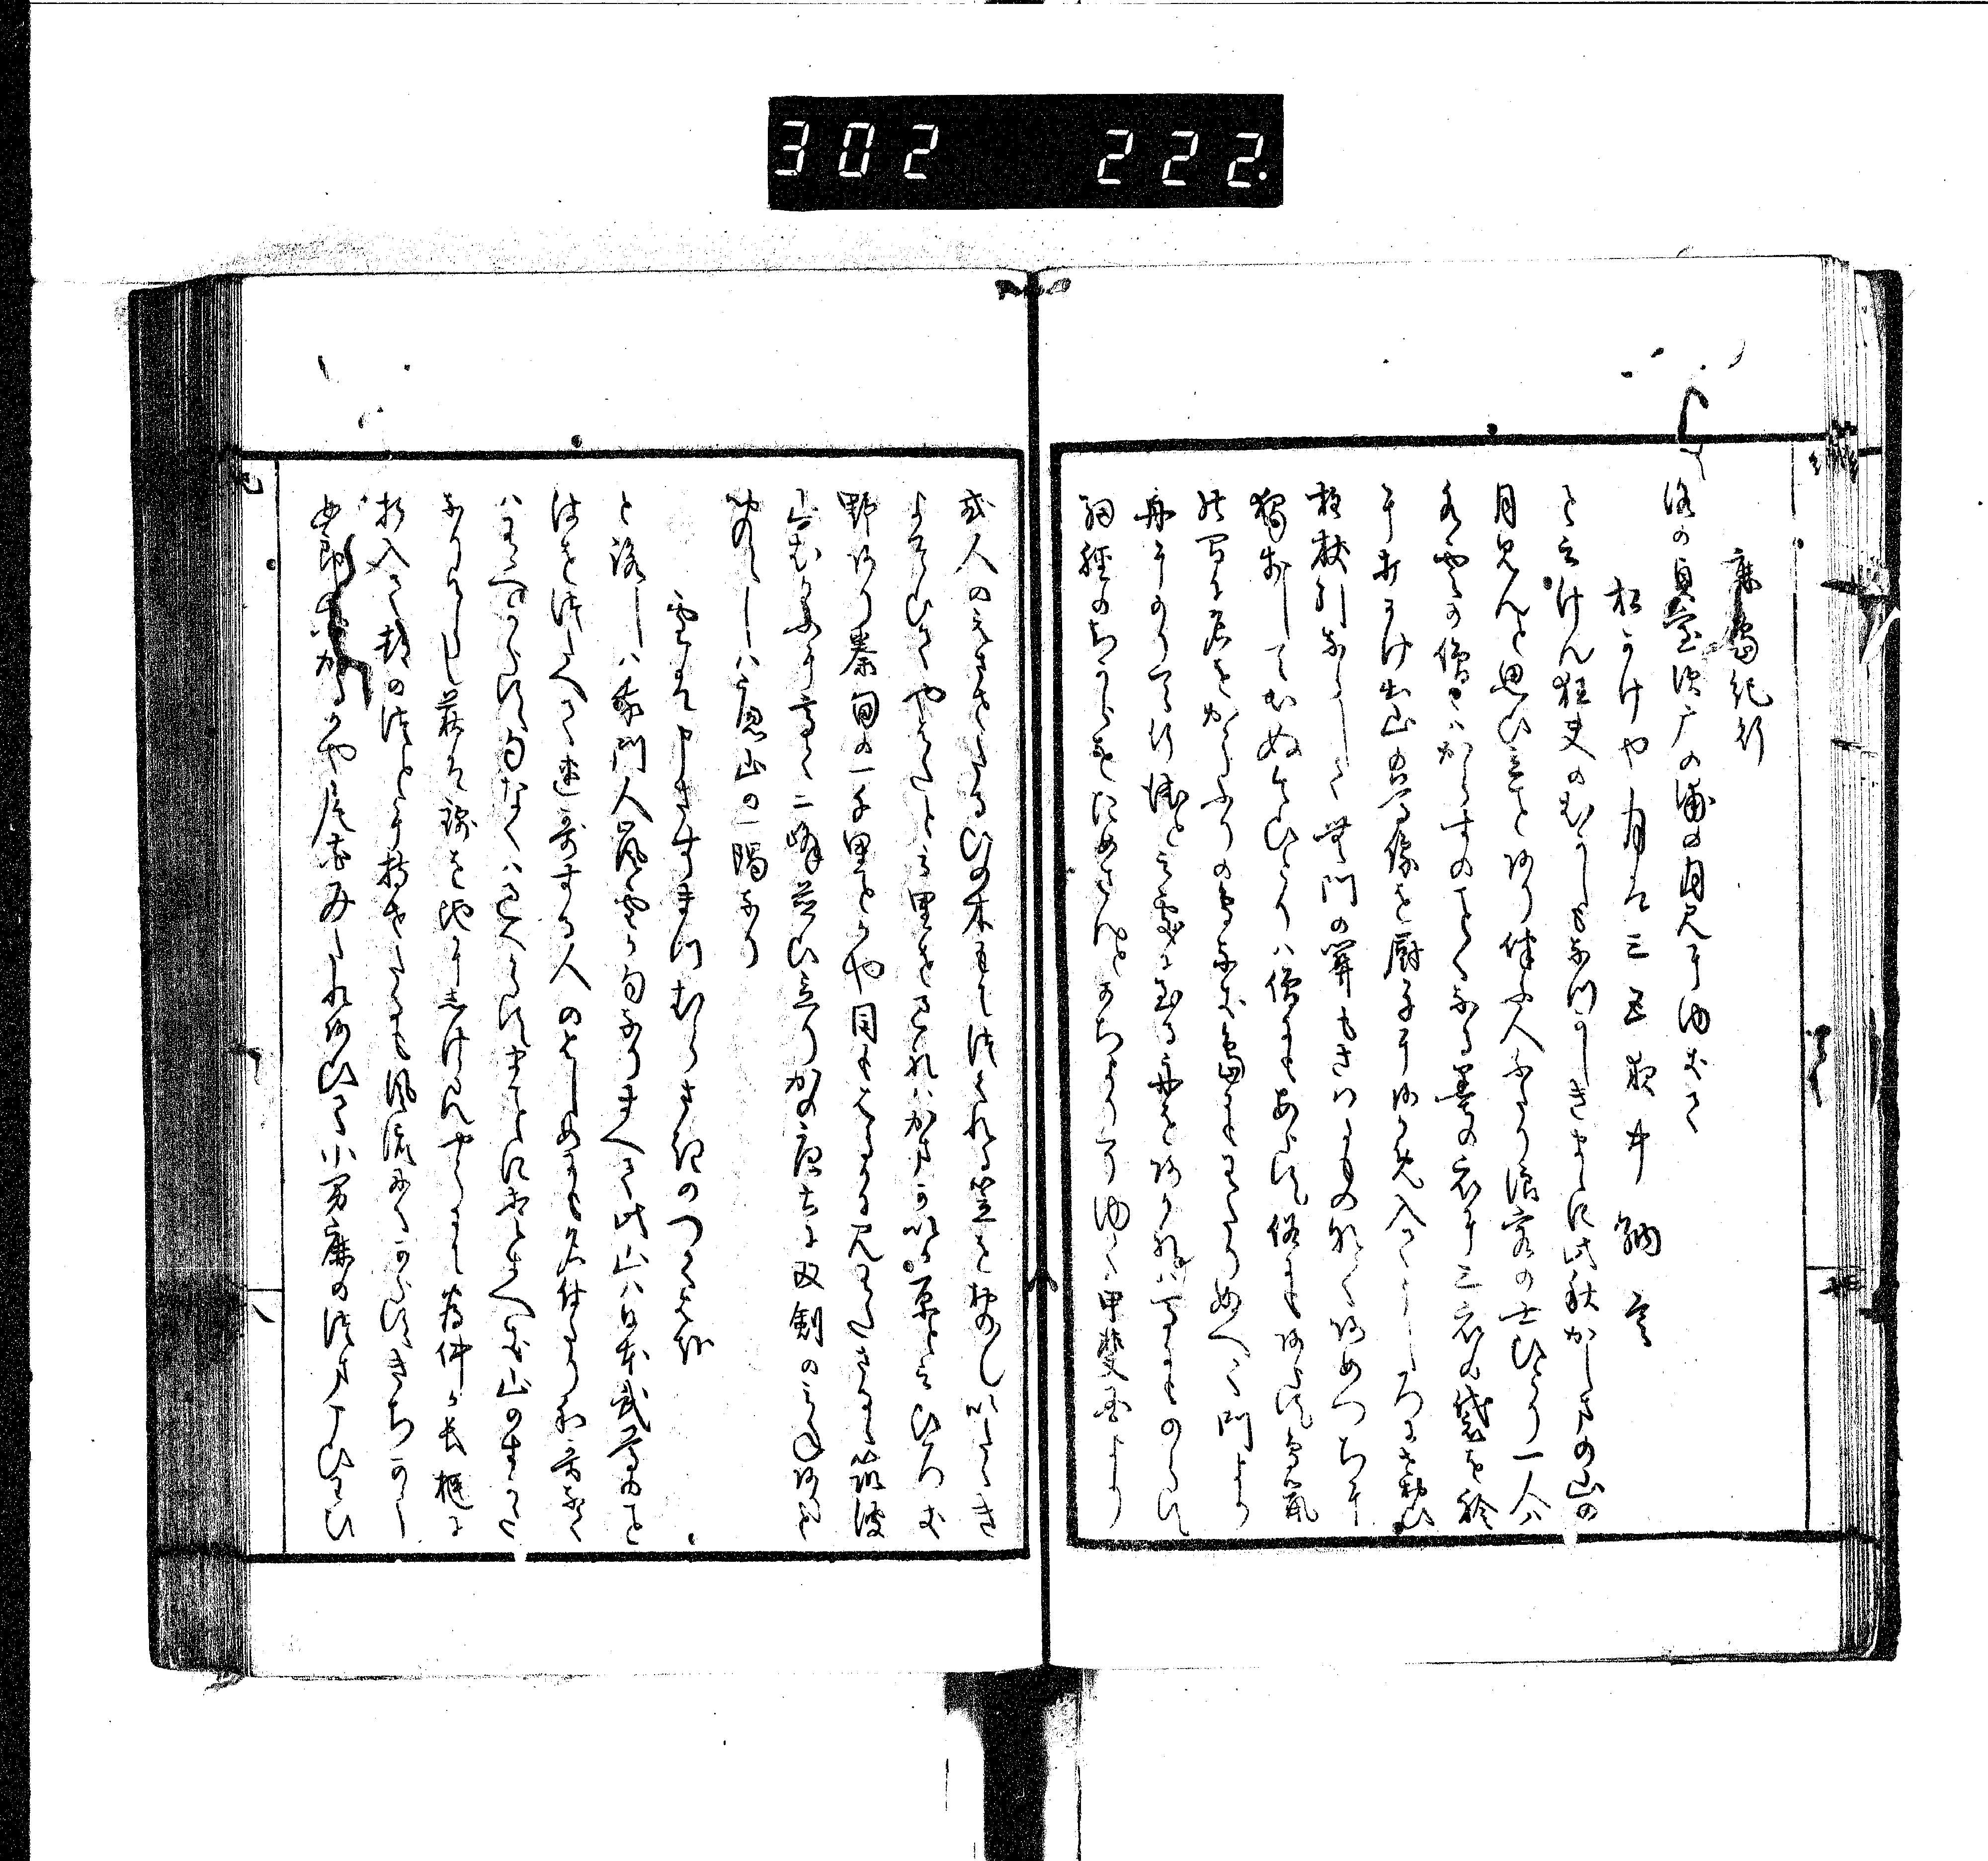 302 222.
鹿嶋紀行
洛の貞室須广の浦の月見にゆきて
松かけや月は三五夜中納言
と云けん狂夫のむかしもなつかしきまゝに此秋かしまの山の
月見んと思ひ立ことあり伴ふ人ふたり浪客の士ひとり一人ハ
水雲の僧々ハからすのことくなる墨の衣に三衣の袋を衿
に打かけ出山の尊像を厨子にあかめ入てうしろにせ負ひ
拄杖引ならして無門の関もさはるものなくあめつちに
獨歩していてぬ今ひとりハ僧にもあらす俗にもあらす鳥鼠
の間に名をかうふりの鳥なき嶋にもわたりぬへく門より
舟にのりて行徳と云処に至る舟をあかれハ馬にものらす
細脛のちからをためさんとかちよりそゆく甲斐国より
或人のえさせたるひの木もて作れる笠をおの〳〵いたゝき
よそひてやはたと云里を過れハかまかいの原と云ひろき
野あり秦甸の一千里とかや目もはるかに見わたさるゝ筑波
山むかふに高く二峰並ひ立りかの唐土に双剣のみねありと
聞えしハ廬山の一隅なり
雪は申さすまつむらさきのつくはかな
と詠しハ我門人嵐雪か句なりすへて此山ハ日本武尊のこと
はを傳へて連哥する人のはしめにも名付たり和哥なく
ハあるへからす句なくハ過へからすまことに愛すへき山のすかた
なりけらし萩は錦を地にしけらんやうにて為仲か長櫃に
折入て都の津とに持せたるも風流にくからすきちかう
女郎花かるかや尾花みたれあひて小男鹿の津まこひわひ